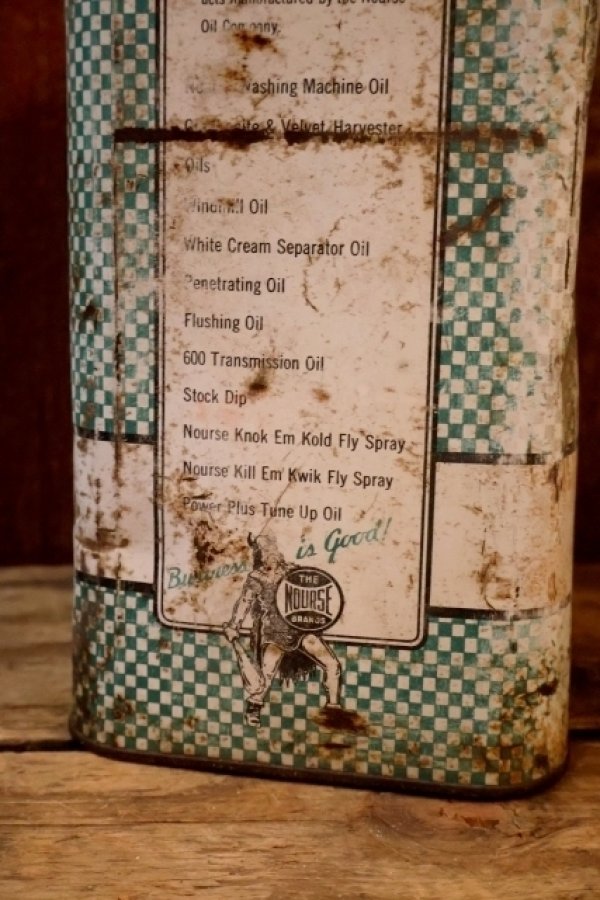 ucts manufactured by the Nourse
Oil Company.
Washing Machine Oil
& Velvet Harvester
Oils
Windmill Oil
White Cream Separator Oil
Penetrating Oil
Flushing Oil
600 Transmission Oil
Stock Dip
Nourse Knok Em Kold Fly Spray
Nourse Kill Em Kwik Fly Spray
Power Plus Tune Up Oil
Business is Good!
THE
NOURSE
BRANDS